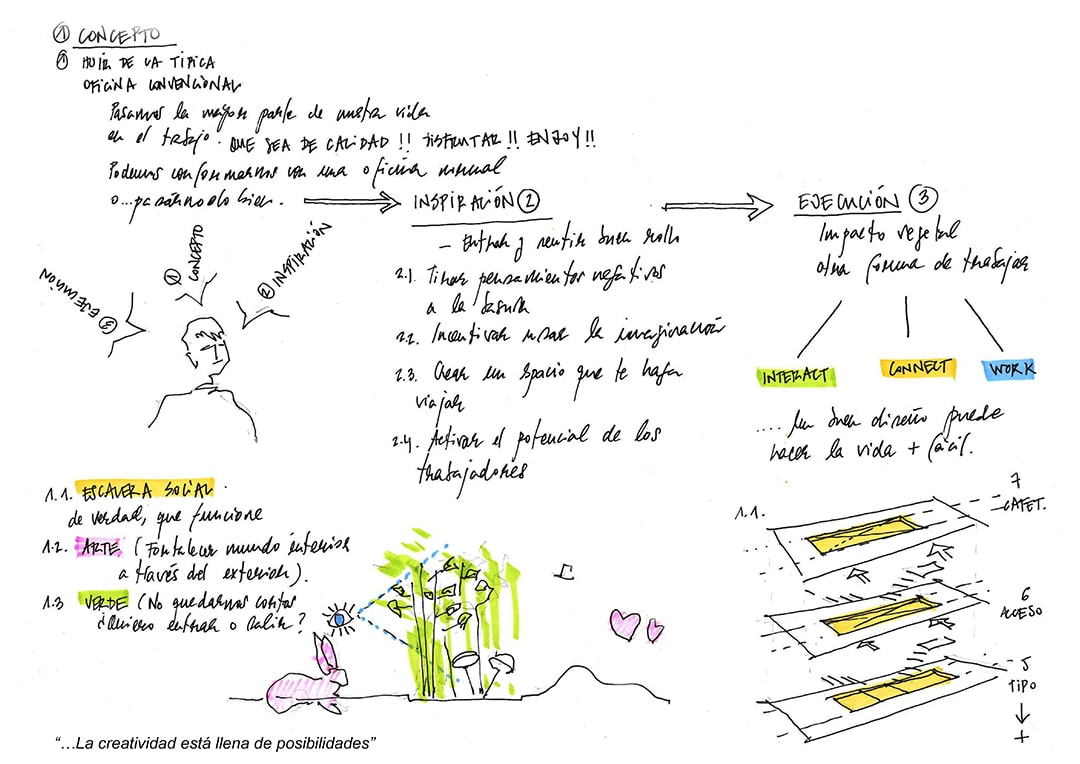 ① CONCEPTO
① HUIR DE LA TIPICA
OFICINA CONVENCIONAL
Pasamos la mayor parte de nuestra vida
en el trabajo. QUE SEA DE CALIDAD!! DISFRUTAR!! ENJOY!!
Podemos conformarnos con una oficina normal
o...pasárnoslo bien.
INSPIRACIÓN ②
- Entrar y sentir buen rollo
2.1. Tirar pensamientos negativos
a la basura
2.2. Incentivar usar la imaginación
2.3. Crear un espacio que te haga
viajar
2.4. Activar el potencial de los
trabajadores
EJECUCIÓN ③
Impacto vegetal
otra forma de trabajar
INTERACT
CONNECT
WORK
.... Un buen diseño puede
hacer la vida + fácil.
③ EJECUCIÓN
① CONCEPTO
② INSPIRACIÓN
1.1. ESCALERA SOCIAL.
de verdad, que funcione
1.2. ARTE (Fortalecer mundo interior
a través del exterior).
1.3 VERDE (No quedarnos cortos
¿Quiero entrar o salir?
1.1.
7
CAFET.
6
ACCESO
5
TIPO
+
“…La creatividad está llena de posibilidades”